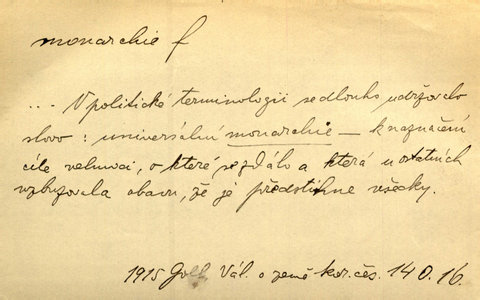 monarchie f
... V politické terminologii se dlouho udržovalo
slovo: universální monarchie – k naznačení
cíle velmoci, o které se zdálo a která u ostatních
vzbuzovala obavu, že je předstihne všecky.
1915 Goll, Vál. o země kor. čes. 14 O. 16.